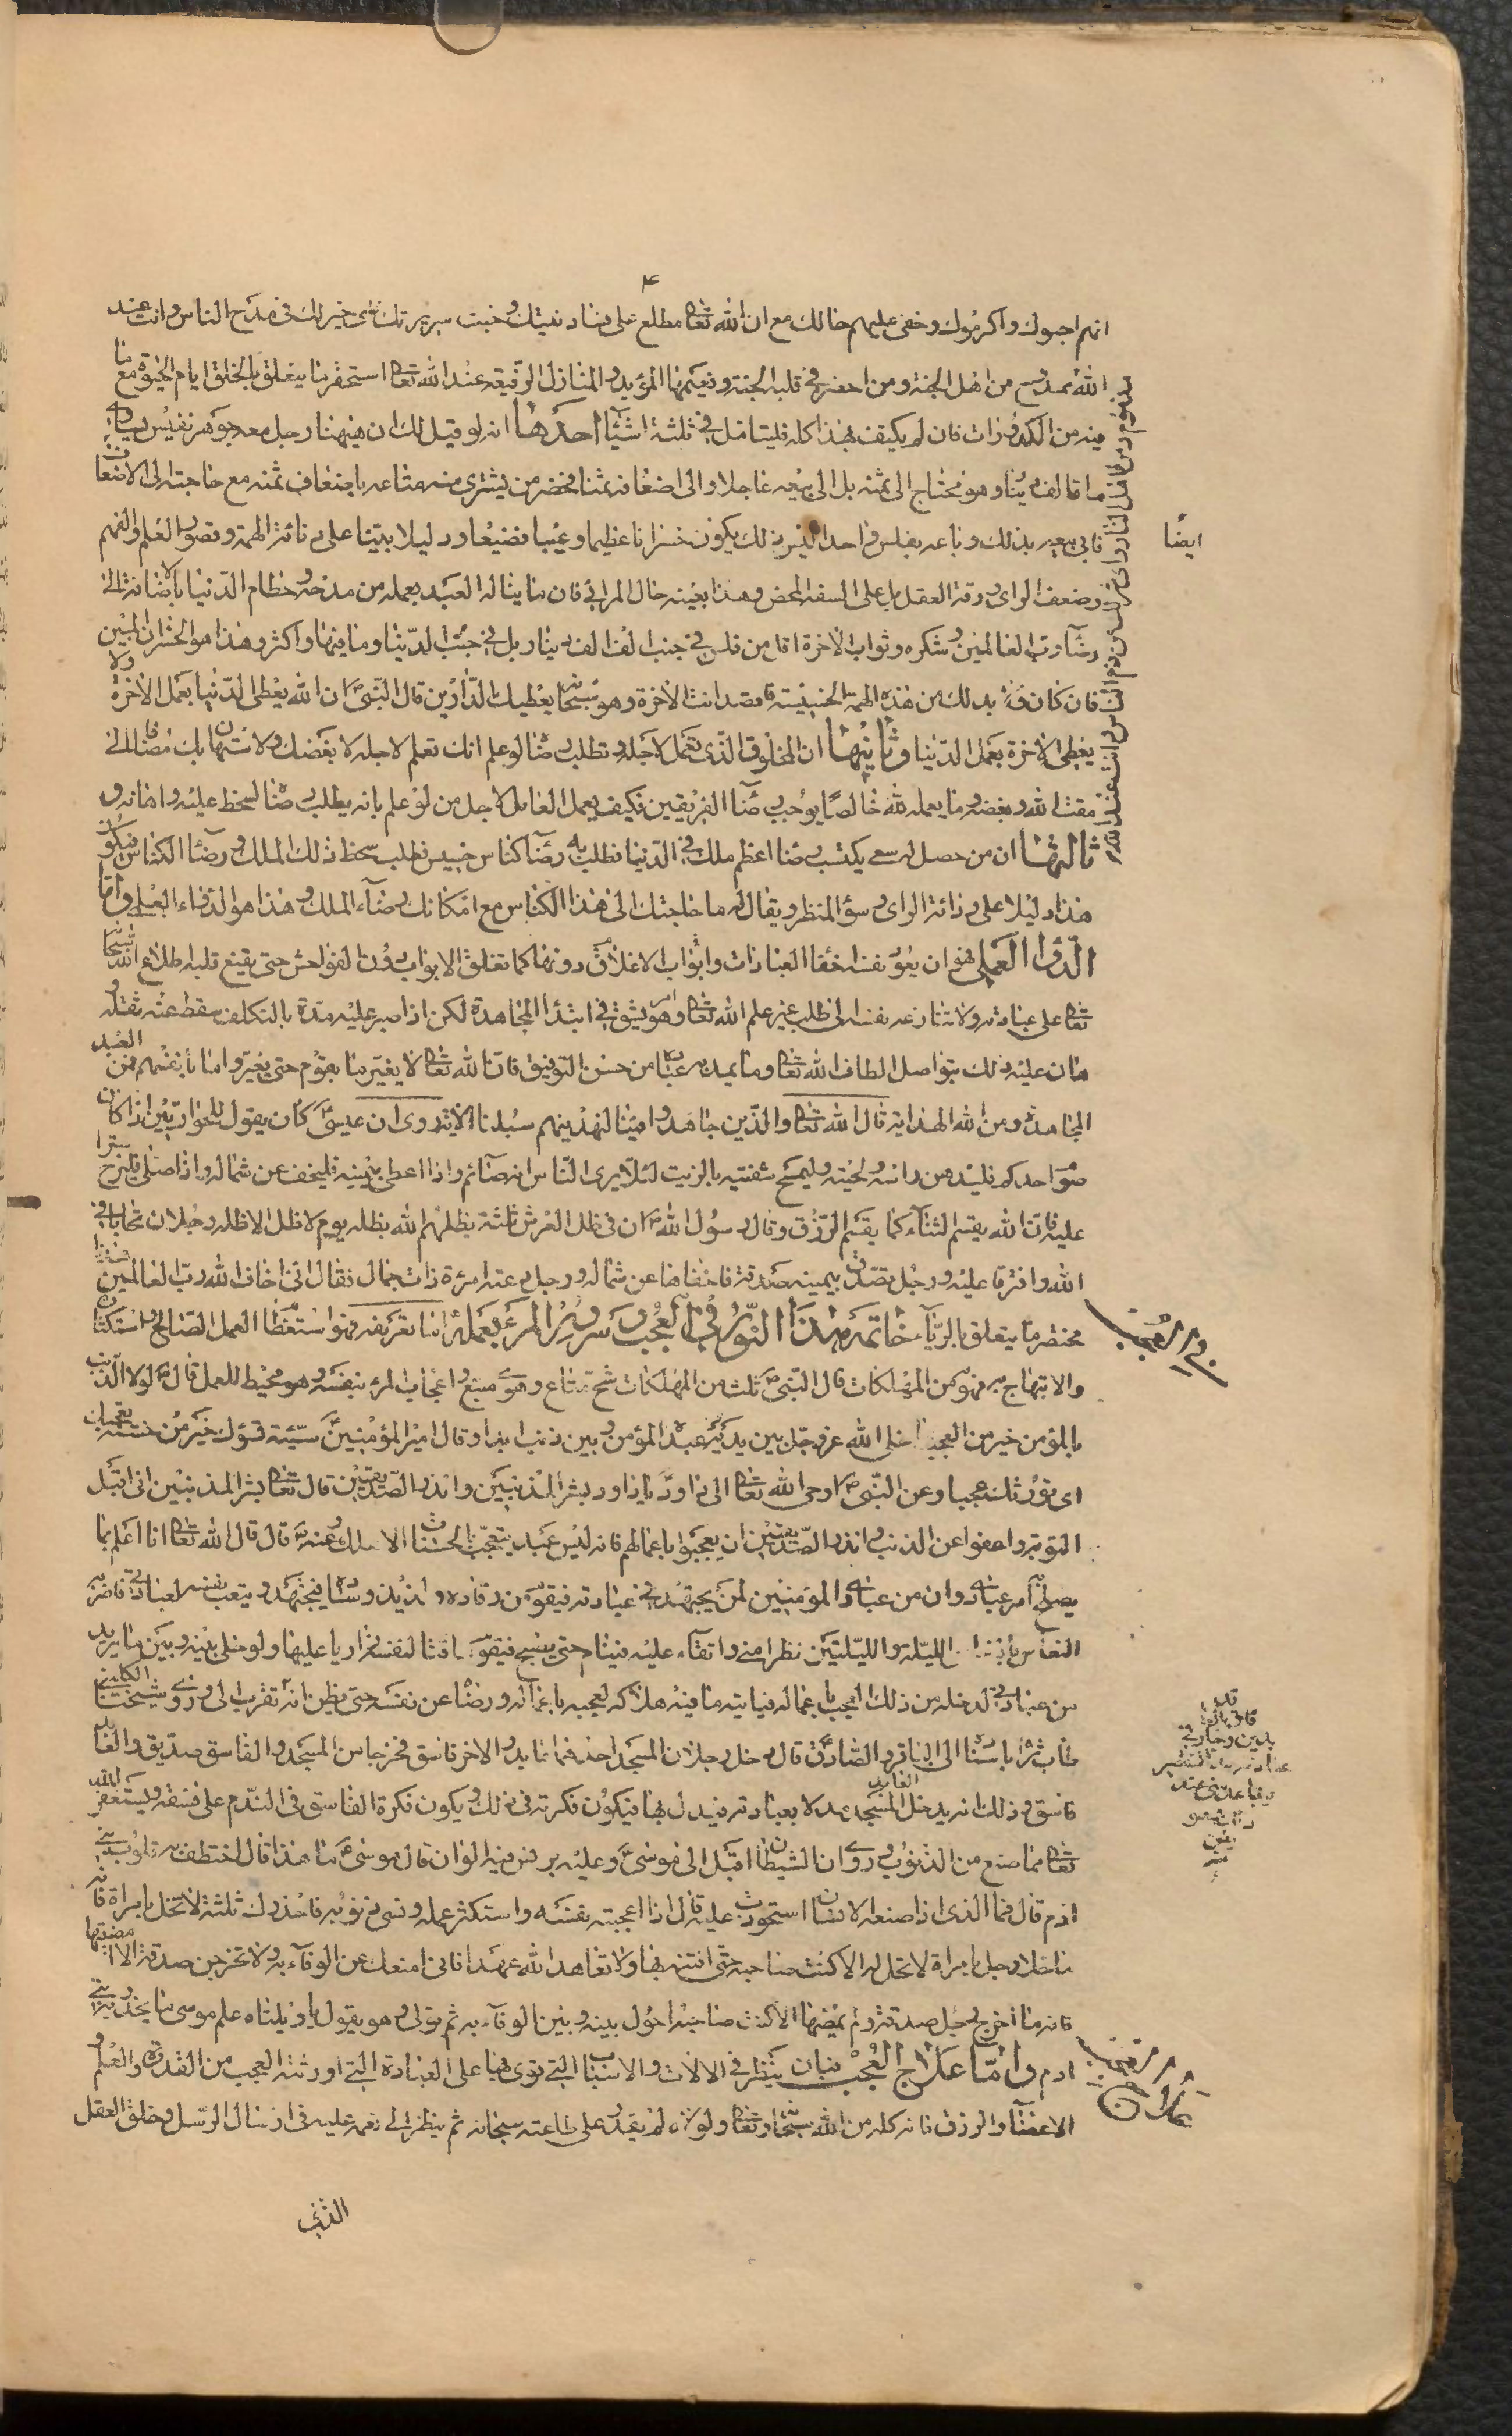 ۴
انهم احبوك واكرموك وخفي عليهم حالك مع ان الله تعالى مطلع على فساد نيتك وخبث سريرتك فاى خير لك في مدح الناس وانت عند
الله مذموم من اهل النار واى شر لك من ذم الناس وانت عند الله
الله ممدوح من اهل الجنة ومن احضر في قلبه الجنة ونعيمها المؤبد والمنازل الرفيعة عند الله تعالى استحقر ما يتعلق بالخلق ايام الحيوة مع ما
فيه من الكدورات فان لم يكف هذا كله فليتامل في ثلثة اشياء احدها انه لو قيل لك ان هيهنا رجل معه جوهر نفيس يساوى
ماة الف دينار وهو محتاج الى ثمنه بل الى بيعه عاجلا والى اضعاف ثمنا فحضر من يشترى منه متاعه باضعاف ثمنه مع حاجته الى الاضعاف
ايضا
فابى بيعه بذلك وباعه بفلس واحد اليس ذلك يكون خسرانا عظيما وعيبا فضيعا ودليلا بينا على دنائة الهمة وقصور العلم والفهم
وضعف الراى ورقة العقل بل على السفه المحض وهذا بعينه حال المرائى فان ما يناله العبد بعمله من مدحة وحطام الدنيا بالاضافة الى
رضاء رب العالمين وشكره وثواب الاخرة اقل من فلس في جنب الف الف دينار بل في جنب الدنيا وما فيها واكثر وهذا هو الخسران المبين
فان كان ولا بد لك من هذه الهمة الخسيسة فاقصد انت الاخرة وهو سبحانه يعطيك الدارين قال النبى ص ان الله يعطى الدنيا بعمل الاخرة ولا
يعطى الاخرة بعمل الدنيا وثانيها ان المخلوق الذى تعمل لاجله وتطلب رضاه لو علم انك تعلم لاجله لابغضك ولاستهان بك مضافا الى
مقت الله وبغضه وما يعمله لله خالصا يوجب رضاء الفريقين فكيف يعمل العامل لاجل من لو علم بانه يطلب رضاه لسخط عليه واهانه و
ثالثها ان من حصل له سعى يكتسب رضا اعظم ملك في الدنيا فطلب به رضاء كناس خسيس فطلب سخط ذلك الملك ورضاء الكناس فيكون
هذا دليلا على رذالة الراى وسوء المنظر ويقال له ما حاجتك الى هذا الكناس مع امكانك رضاء الملك وهذا هو الدواء العلمى واما
الدواء العملى فهو ان يعود نفسه اخفاء العبادات وابواب الاغلاق دونها كما تغلق الابواب دون الفواحش حتى يقنع قلبه اطلاع الله سبحانه
تعالى على عبادته ولا تنازعه نفسه الى طلب غير علم الله تعالى وهو امر يشق في ابتداء المجاهدة لكن اذا صبر عليه مدة بالتكلف سقط عنه ثقله و
هان عليه ذلك بتواصل الطاف الله تعالى وما يمد به عباده من حسن التوفيق فان الله تعالى لا يغير ما بقوم حتى يغيروا ما بانفسهم فمن العبد
المجاهدة ومن الله الهداية قال الله تعالى والذين جاهدوا فينا لنهدينهم سبلنا الاية روى ان عيسى كان يقول للحواريين اذا كان
صوم احدكم فليدهن راسه ولحيته وليمسح شفتيه بالزيت لئلا يرى الناس انه صائم واذا اعطى بيمينه فليخف عن شماله واذا صلى فليرخ سترا
عليه فان الله يقسم الثناء كما يقسم الرزق وقال رسول الله ص ان في ظل العرش ثلثة يظلهم الله بظله يوم لا ظل الا ظله رجلان تحابا في
الله وافترقا عليه ورجل تصدق بيمينه صدقة فاخفاها عن شماله ورجل دعته امرءة ذات جمال فقال انى اخاف الله رب العالمين هذا
مختصر ما يتعلق بالرياء خاتمة هذا النور في العجب وسرور المرء بعمله اما تعريفه فهو استعظام العمل الصالح واستكثاره
ذم العجب
والابتهاج به فهو من المهلكات قال النبى ص ثلث من المهلكات شح مطاع وهوى متبع واعجاب المرء بنفسه وهو محيط للعمل قال ص لولا ان الذنب
بالمؤمن خير من العجب ما خلى الله عز وجل بين يدى عبده المؤمن وبين ذنب ابدا وقال امير المؤمنين سيئة تسؤك خير من حسنة تعجبك
اى تورثك عجبا وعن النبى ص اوحى الله تعالى الى داود يا داود بشر المذنبين وانذر الصديقين قال تعالى بشر المذنبين انى اقبل
التوبة واعفو عن الذنب وانذر الصديقين ان يعجبوا باعمالهم فانه ليس عبد يتعجب بالحسنات الا هلك وعنه قال قال الله تعالى انا اعلم بما
يصلح امر عبادى وان من عبادى المؤمنين لمن يجتهد في عبادته فيقوم من رقاده ولذيذ وساده فيجتهد ويتعب نفسه لعبادتى فاضربه
النعاس الليلة والليلتين نظرا منى واتقاء عليه فينام حتى يصبح فيقوم ماقتا لنفسه زاريا عليها ولو خلى بينه وبين ما يريد
من عبادتى لدخله من ذلك العجب باعماله فياتيه ما فيه هلاكه لعجبه باعماله ورضاه عن نفسه حتى يظن انه تقرب الى وروى شيخنا الكلينى
طاب ثراه باسناده الى الباقر او الصادق قال دخل رجلان المسجد احدهما عابد والاخر فاسق فخرجا من المسجد والفاسق صديق والعابد
فاسق وذلك انه يدخل العابد المسجد مدلا بعبادته فيدل بها فيكون فكرته في ذلك ويكون فكرة الفاسق في الندم على فسقه ويستغفر الله
تعالى مما صنع من الذنوب وروى ان الشيطان اقبل الى موسى وعليه برنس فيه الوان قال موسى ما هذا قال اختطف به قلوب بنى
ادم قال فما الذى اذا صنعه الانسان استحوذت عليه قال اذا اعجبته نفسه واستكثر عمله ونسى ذنوبه فاحذرك ثلثة لا تخل بامراة فانه
ما خلا رجل بامراة لا تحل له الا كنت صاحبه حتى افتنه بها ولا تعاهد الله عهدا فانى امنعك عن الوفاء به ولا تخرجن صدقة الا امضيتها
فانه ما اخرج رجل صدقة ولم يمضها الا كنت صاحبه احول بينه وبين الوفاء به ثم تولى وهو يقول يا ويلتاه علم موسى ما يحذر به بنى
ادم واما علاج العجب فبان ينظر في الالات والاسباب التى قوى بها على العبادة التى اورثته العجب من القدرة والعلم و
علاج العجب
الاعضاء والرزق فانه كله من الله سبحانه وتعالى ولولاه لم يقدر على طاعته سبحانه ثم ينظر الى نعمه عليه في ارسال الرسل وخلق العقل